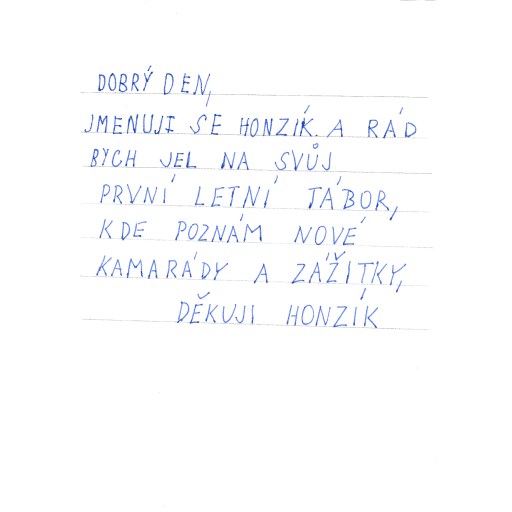 DOBRÝ DEN,
JMENUJI SE HONZÍK. A RÁD
BYCH JEL NA SVŮJ
PRVNÍ LETNÍ TÁBOR,
KDE POZNÁM NOVÉ
KAMARÁDY A ZÁŽITKY,
DĚKUJI HONZÍK